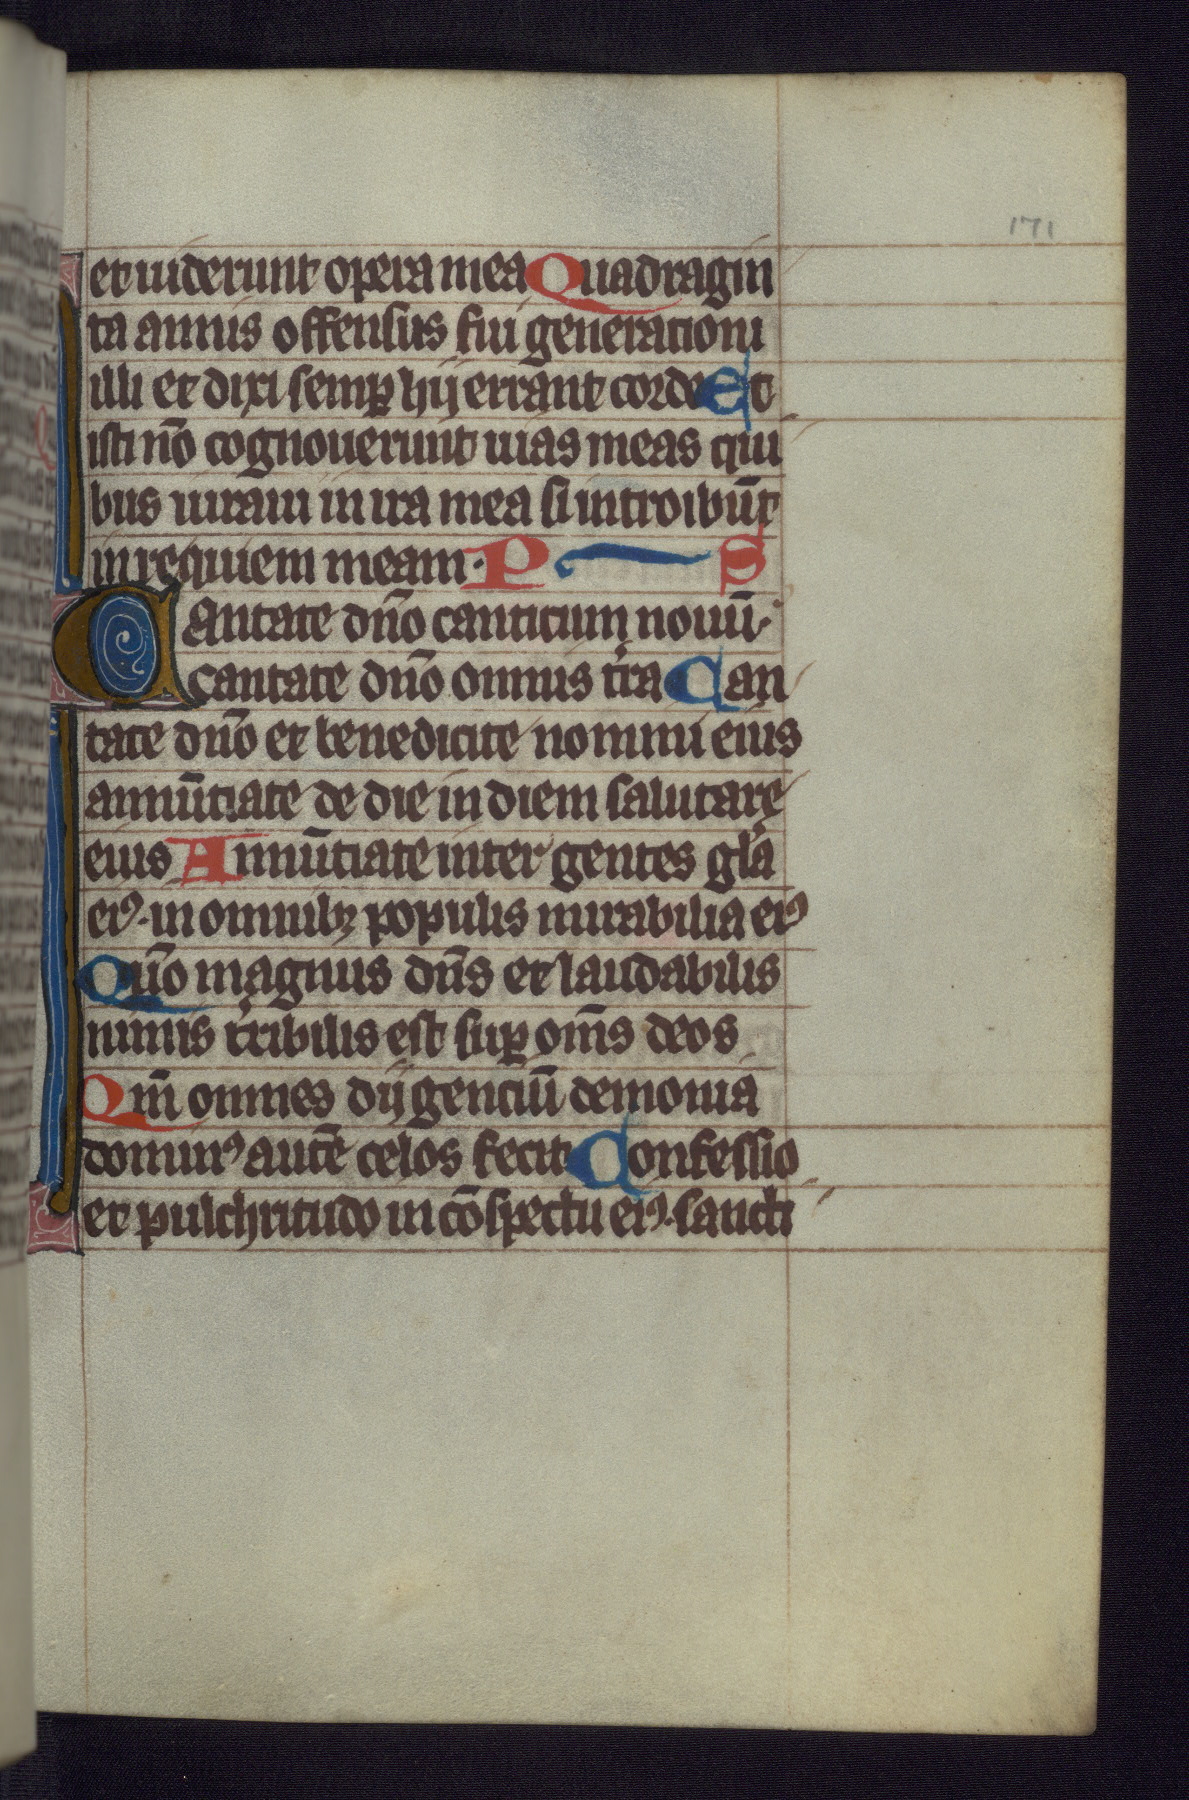 171
et uiderunt opera mea Quadragin
ta annis offensus fui generationi
illi et dixi semꝑ hij errant corde Et
isti nō cognouerunt uias meas qui
bus iuraui in ira mea si introibūt
in requiem meam · P S
Cantate dn̄o canticum nouū ·
cantate dn̄o omnis t̄ra Can
tate dn̄o et benedicite nomini eius
annūtiate de die in diem salutare
eius Annūtiate inter gentes gl̄a
eiꝰ · in omnibꝫ populis mirabilia eiꝰ
Qūo magnus dn̄s et laudabilis
nimis t̄ribilis est suꝑ om̄s deos
Qm̄ omnes dij genciū demonia
dominꝰ autē celos fecit Confessio
et pulchritudo in cōspectu eiꝰ · sancti